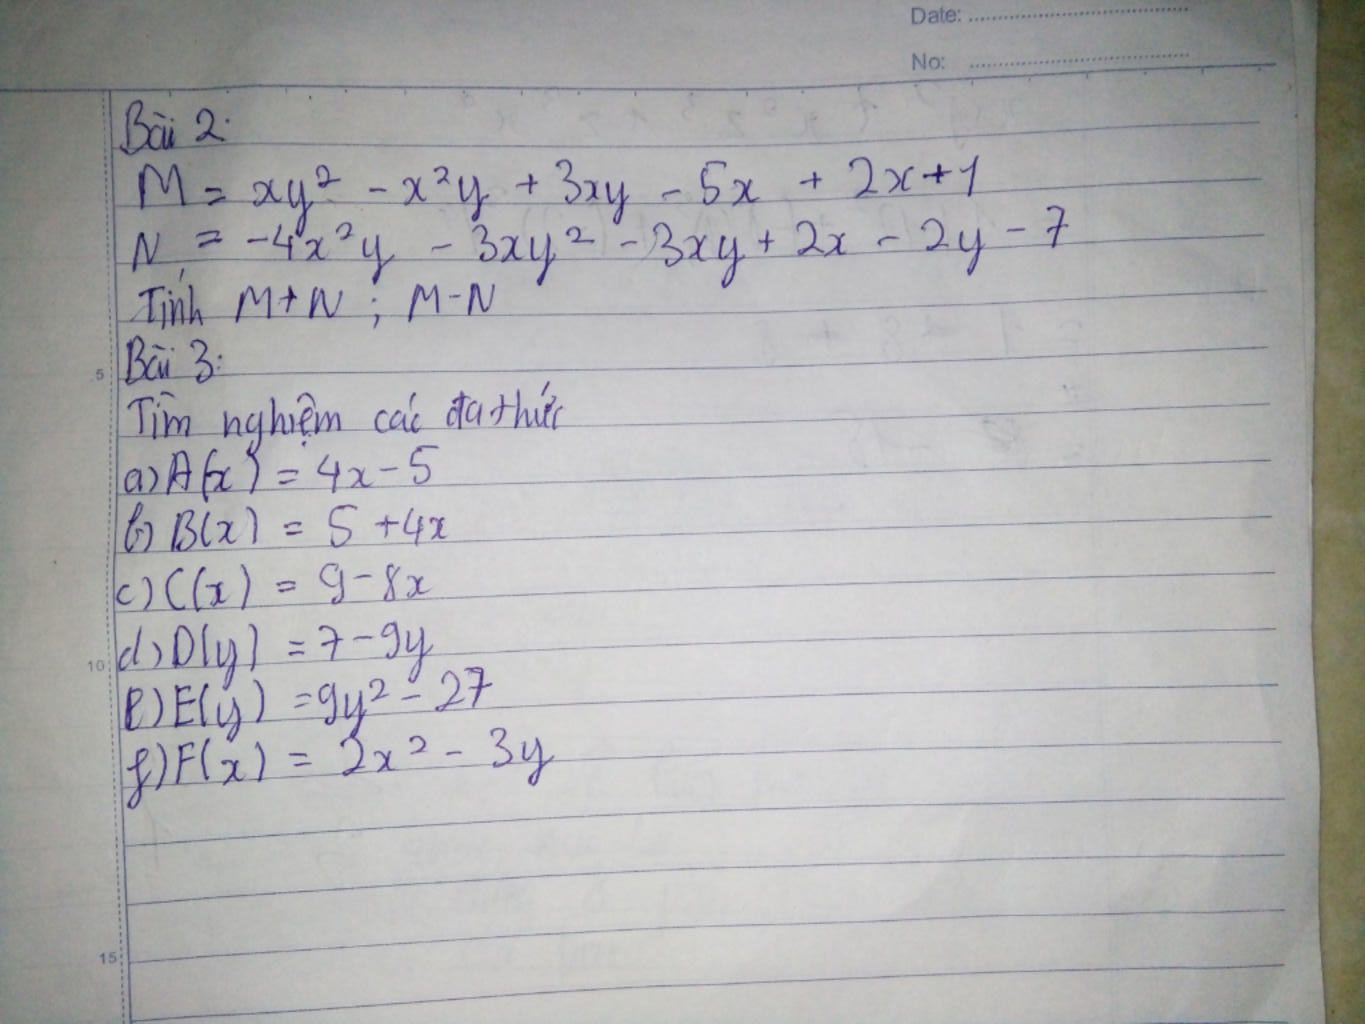 Date:
No:
Bài 2:
M = xy² - x²y + 3xy - 5x + 2x + 1
N = -4x²y - 3xy² - 3xy + 2x - 2y - 7
Tính M+N ; M-N
Bài 3:
5
Tìm nghiệm các đa thức
a) A(x) = 4x - 5
b) B(x) = 5 + 4x
c) C(x) = 9 - 8x
d) D(y) = 7 - 9y
10
e) E(y) = 9y² - 27
f) F(x) = 2x² - 3y
15